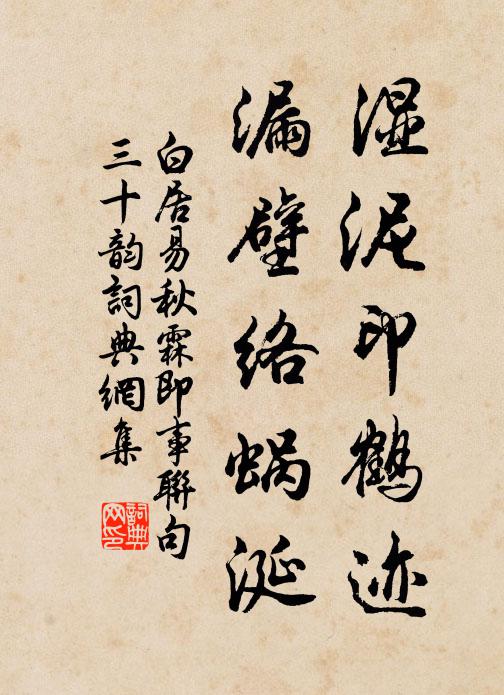 湿泥印鹤迹
漏壁络蜗涎
白居易秋霖即事聯句
三十韵詞典網集
詞典
网印